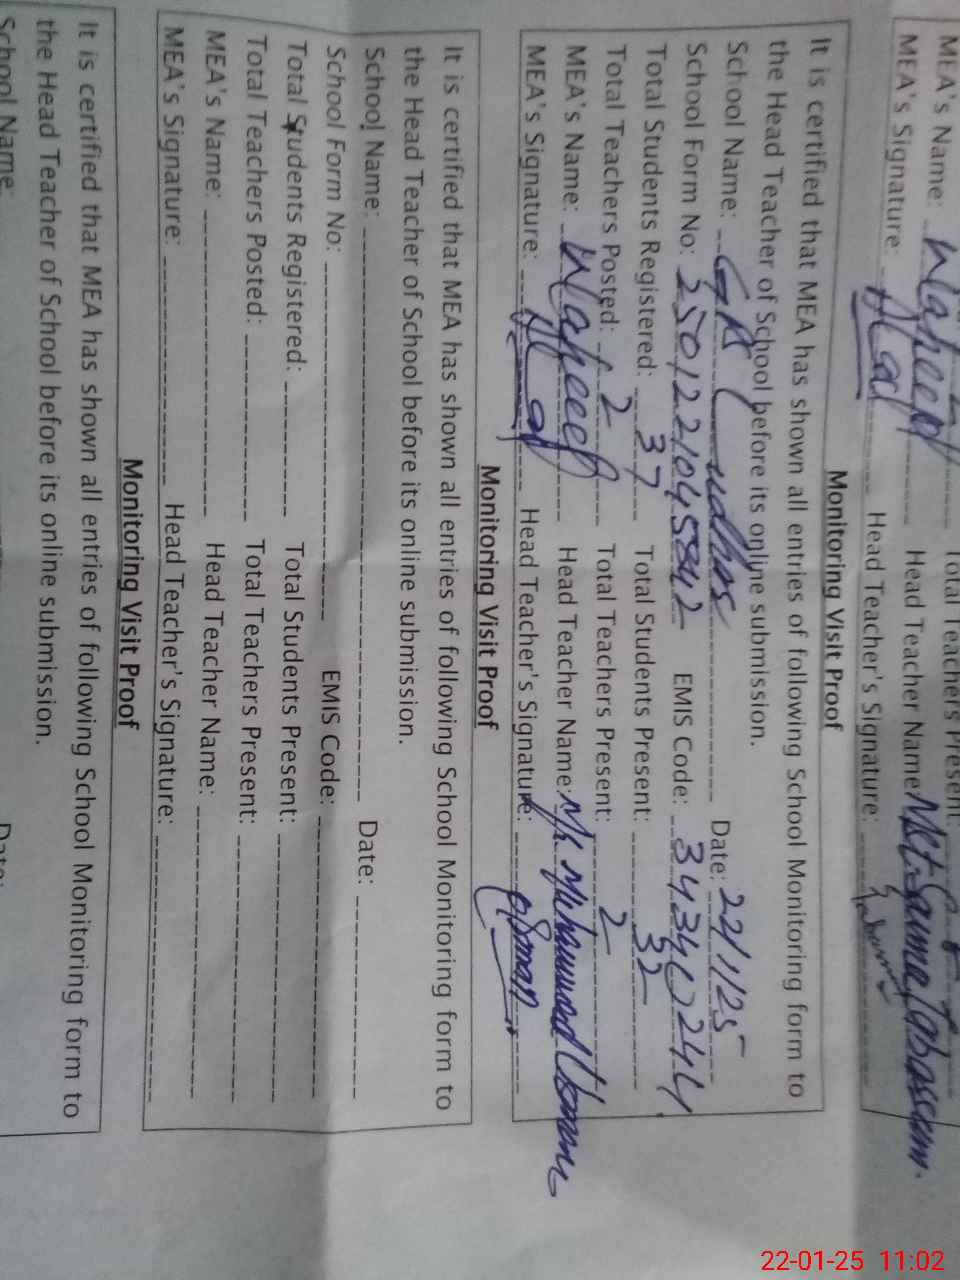 Total Teachers Present:
MEA's Name: Waheed Head Teacher Name: Mst. Saima Tabassum.
MEA's Signature: Head Teacher's Signature:
Monitoring Visit Proof
It is certified that MEA has shown all entries of following School Monitoring form to
the Head Teacher of School before its online submission.
School Name: GPS Date: 22/1/25
School Form No: 2501221045842 EMIS Code:
Total Students Registered: 37 Total Students Present: 32
Total Teachers Posted: 2 Total Teachers Present: 2
MEA's Name: Waheed Head Teacher Name: Mr. Muhammad Usman
MEA's Signature: Head Teacher's Signature: Usman
Monitoring Visit Proof
It is certified that MEA has shown all entries of following School Monitoring form to
the Head Teacher of School before its online submission.
School Name: Date:
School Form No: EMIS Code:
Total Students Registered: Total Students Present:
Total Teachers Posted: Total Teachers Present:
MEA's Name: Head Teacher Name:
MEA's Signature: Head Teacher's Signature:
Monitoring Visit Proof
It is certified that MEA has shown all entries of following School Monitoring form to
the Head Teacher of School before its online submission.
School Name: Date:
22-01-25 11:02